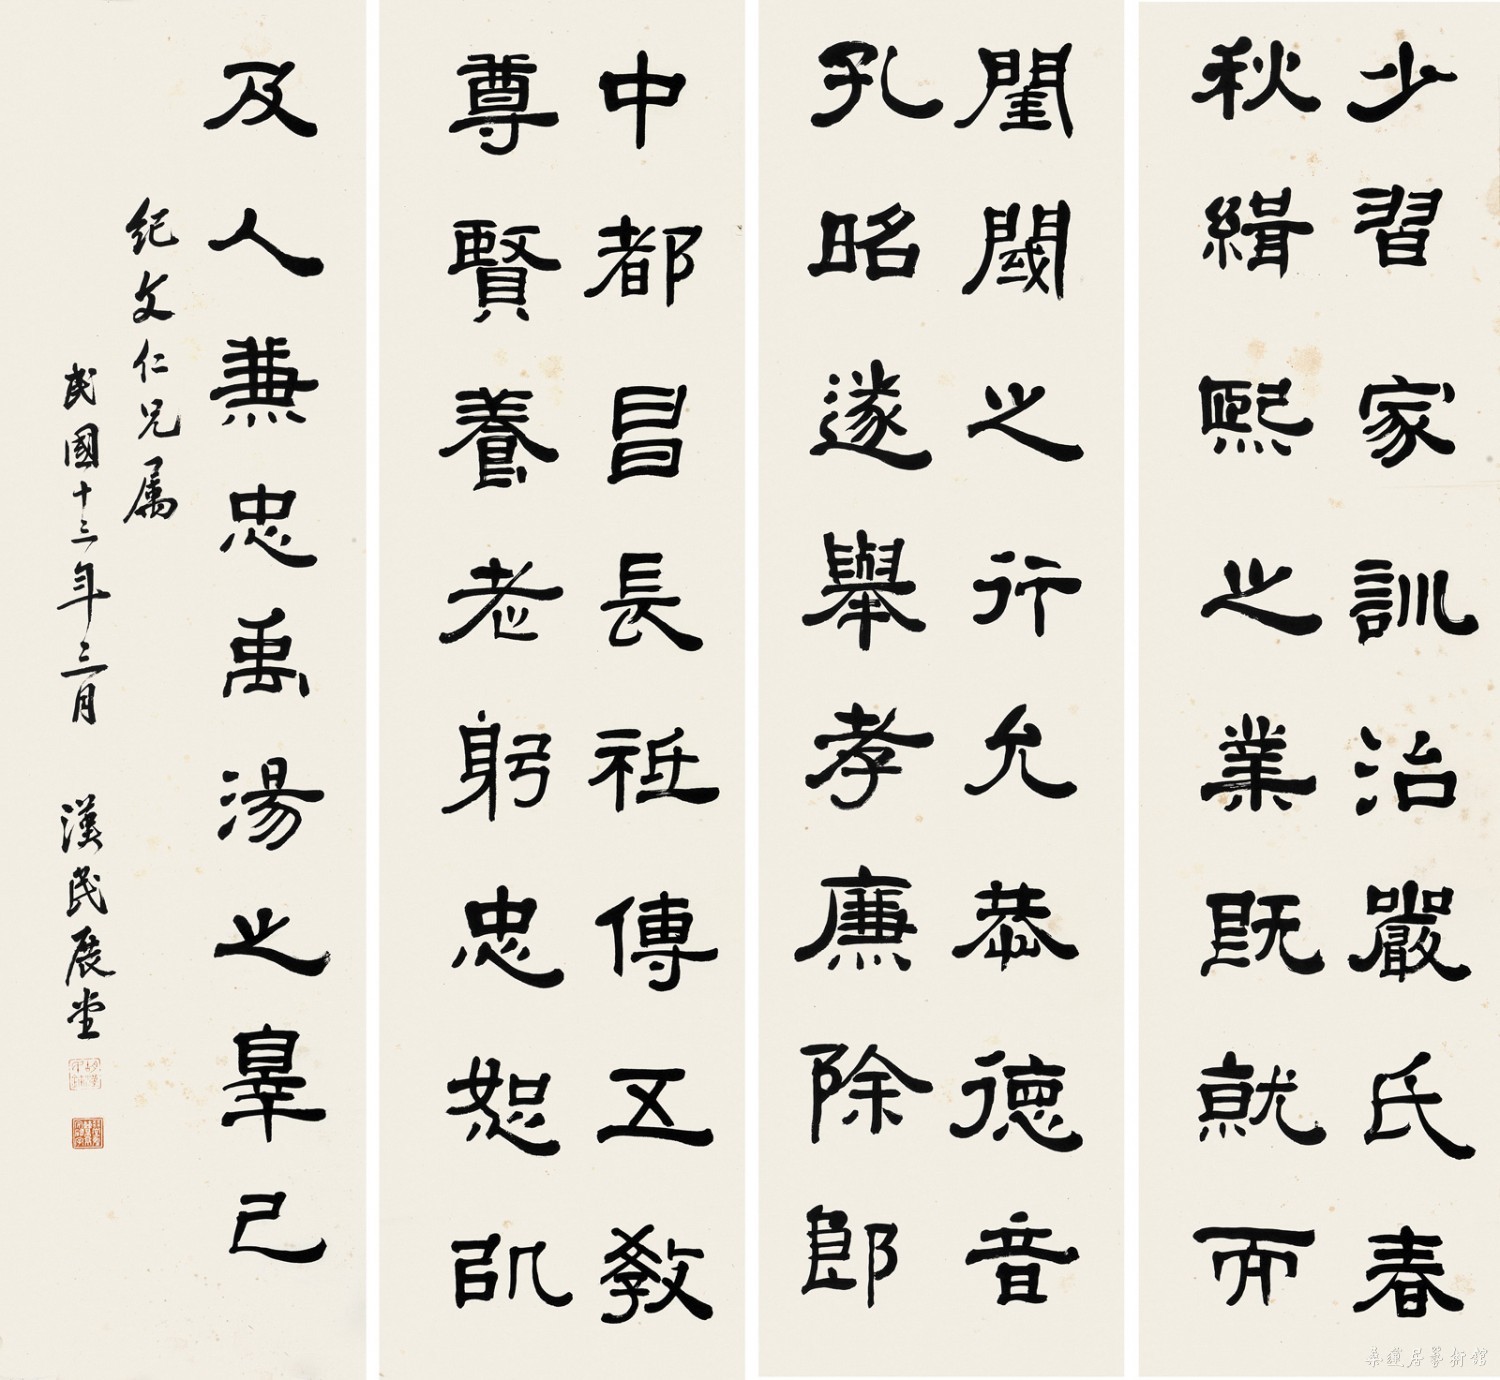 少習家訓治嚴氏春
秋緝熙之業既就而
閨閾之行允恭德音
孔昭遂舉孝廉除郎
中都昌長祗傳五教
尊賢養老躬忠恕㠯
及人兼忠禹湯之辠己
紀文仁兄属
民國十三年三月 漢民展堂